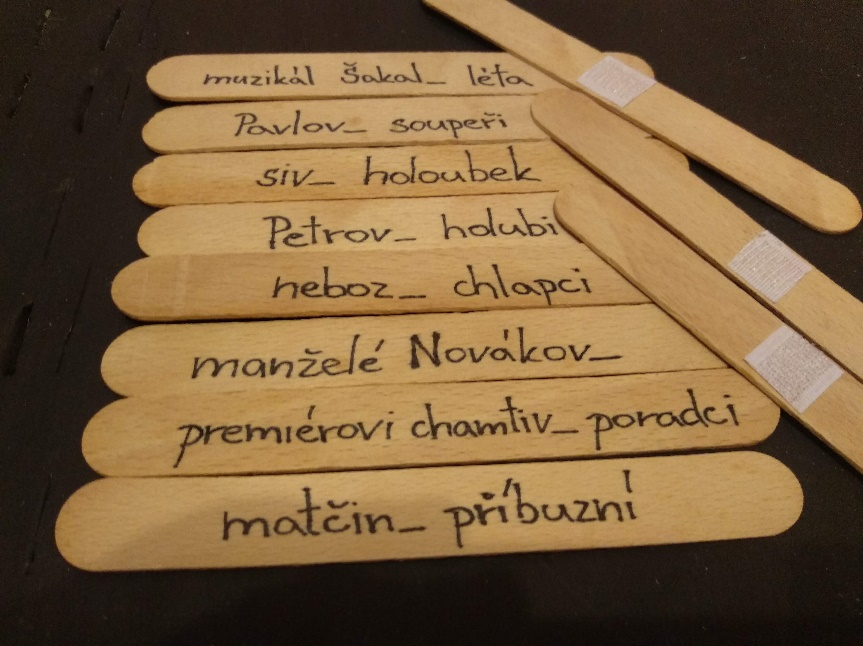 muzikál Šakal_ léta
Pavlov_ soupeři
siv_ holoubek
Petrov_ holubi
neboz_ chlapci
manželé Novákov_
premiérovi chamtiv_ poradci
matčin_ příbuzní